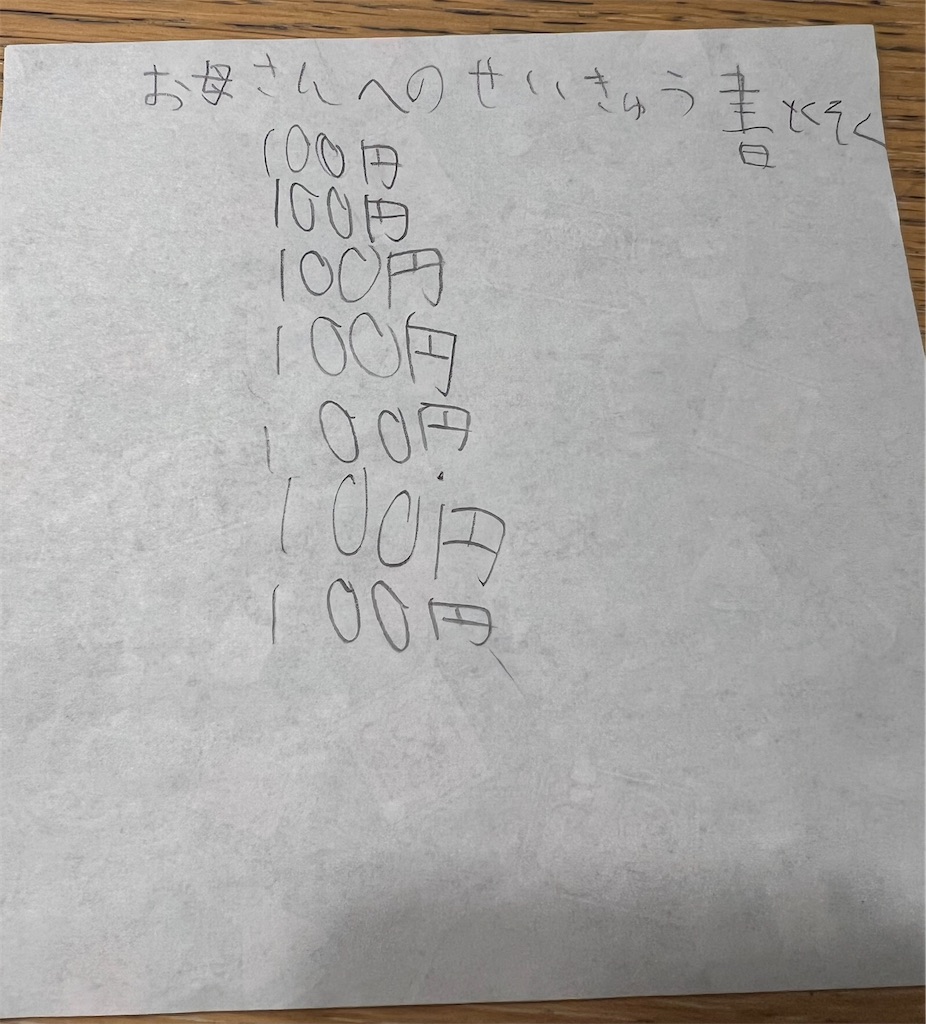 お母さんへのせいきゅう書とくそく
100円
100円
100円
100円
100円
100円
100円